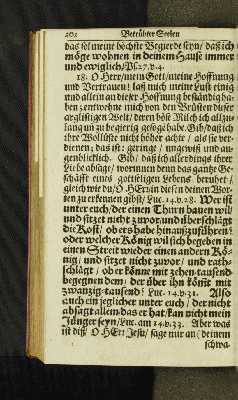 202 Betrübter Seelen
das sol meine höchste Begierde seyn/ daß ich
möge wohnen in deinem Hause immer
und ewiglich/ Ps. 27. v. 4.
18. O Herr/ mein Gott/ meine Hoffnung
und Vertrauen! laß mich meine Lust einig
und allein an dieser Hoffnung beständig ha-
ben/ entwehne mich von den Brüsten dieser
arglistigen Welt/ deren böse Milch ich allzu-
lang un zu begierig gesogen habe. Gib/ daß ich
ihre Wollüste nicht höher achte / als sie ver-
dienen; das ist: geringe / ungewiß und au-
genblicklich. Gib / daß ich allerdings ihrer
Liebe absage/ worinnen denn das gantze Ge-
schäffte eines gottseligen Lebens beruhet /
gleich wie du / O HErr an diesen deinen Wor-
ten zu erkennen gibst/ Luc. 14. v. 28. Wer ist
unter euch/ der einen Thurn bauen will
und sitzet nicht zuvor und überschlägt
die Kost / ob ers habe hinauszuführen?
oder welcher König wil sich begeben in
einen Streit wieder einen andern Kö-
nig/ und sitzet nicht zuvor / und rath-
schlägt / ob er könne mit zehen tausend
begegnen dem/ der über ihn kömt mit
zwantzig tausend? Luc. 14. v. 31. Also
auch ein jeglicher unter euch/ der nicht
absagt allem das er hat/ kan nicht mein
Jünger seyn/ Luc. am 14. v. 33. Aber was
ist diß/ O HErr Jesu/ sage mir an ( deinem
schwa-